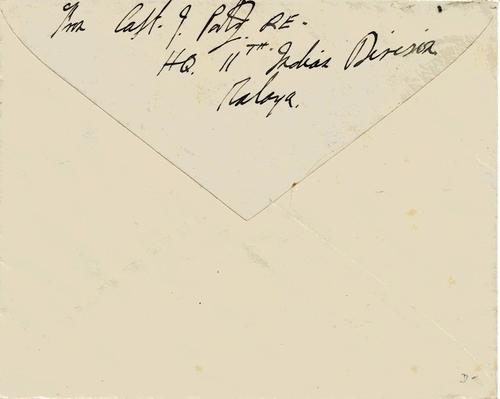 From Capt. J. RE.
HQ. 11TH Indian Division
Malaya.